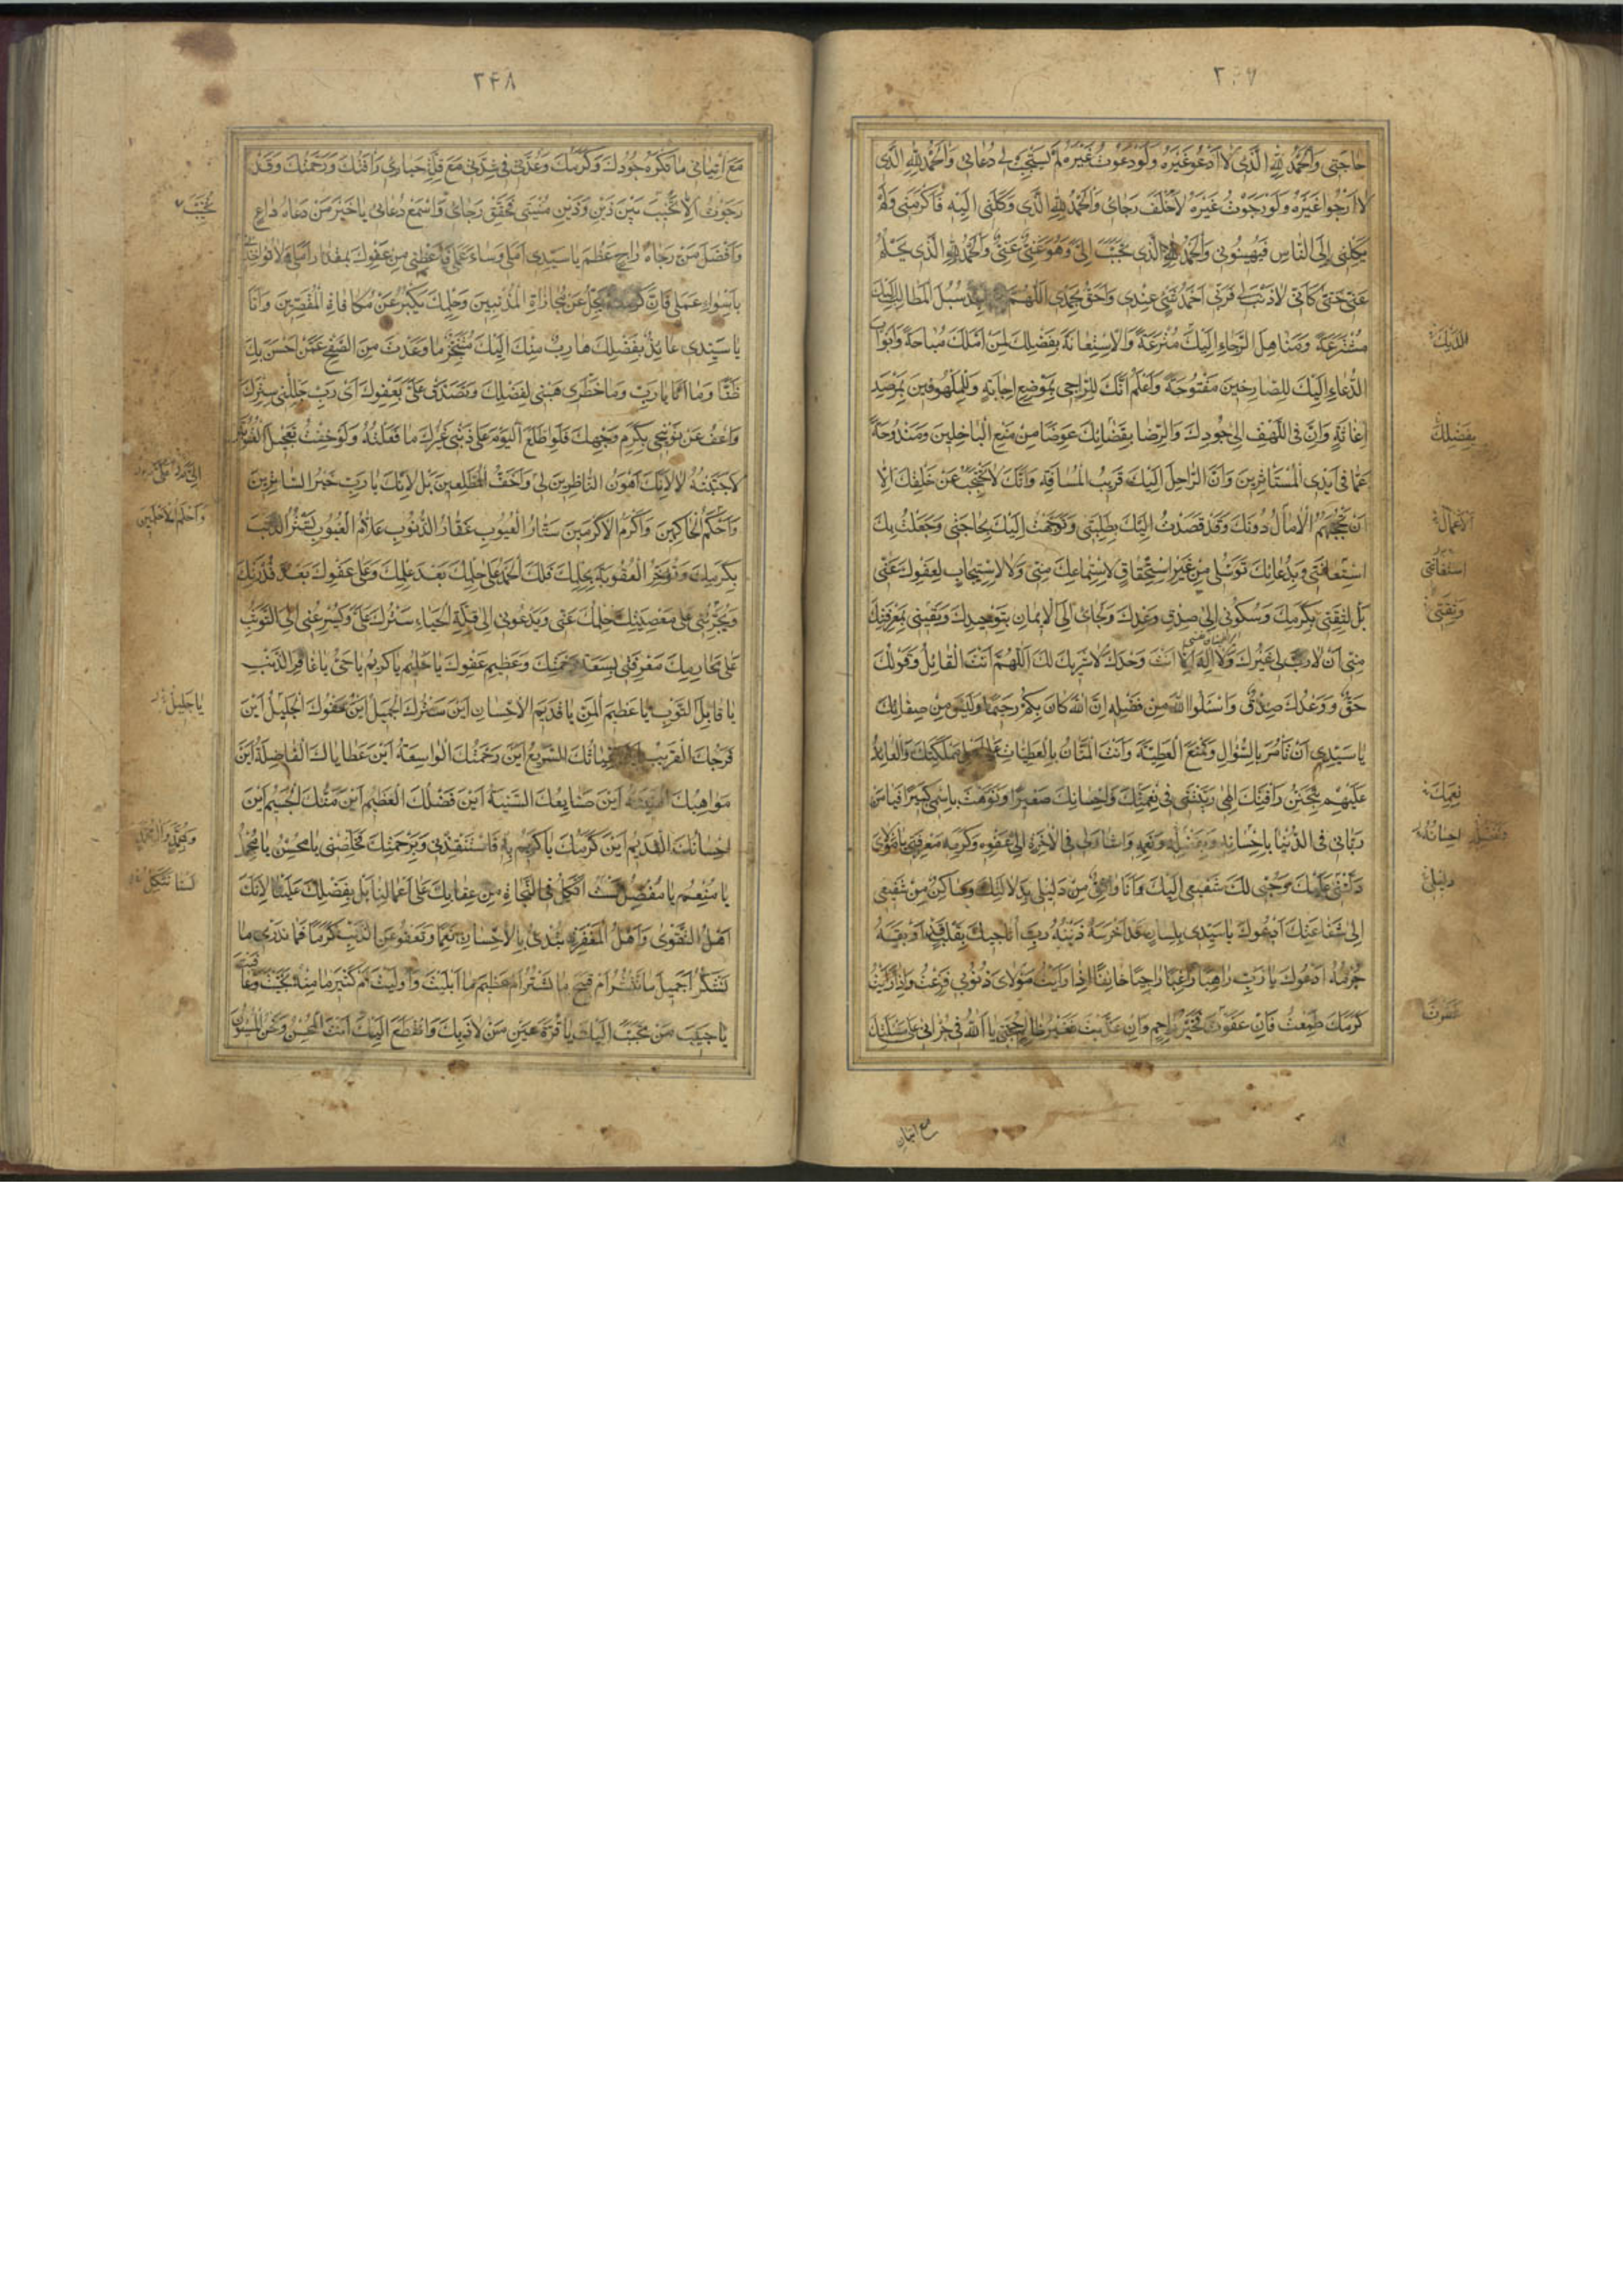 حاجَتی وَالْحَمْدُ لِلّٰهِ الَّذی لا اَدْعُو غَیْرَهُ وَلَوْ دَعَوْتُ غَیْرَهُ لَمْ یَسْتَجِبْ لی دُعائی وَالْحَمْدُ لِلّٰهِ الَّذی
لا اَرْجُوا غَیْرَهُ وَلَوْ رَجَوْتُ غَیْرَهُ لَاَخْلَفَ رَجائی وَالْحَمْدُ لِلّٰهِ الَّذی وَکَلَنی اِلَیْهِ فَاَکْرَمَنی وَلَمْ
یَکِلْنی اِلَی النّاسِ فَیُهینُونی وَالْحَمْدُ لِلّٰهِ الَّذی تَحَبَّبَ اِلَیَّ وَهُوَ غَنِیٌّ عَنّی وَالْحَمْدُ لِلّٰهِ الَّذی یَحْلُمُ
عَنّی حَتّی کَاَنّی لا ذَنْبَ لی فَرَبّی اَحْمَدُ شَیْءٍ عِنْدی وَاَحَقُّ بِحَمْدی اَللّٰهُمَّ اَجِدُ سُبُلَ الْمَطالِبِ اِلَیْكَ
مُشْرَعَةً وَمَناهِلَ الرَّجاءِ اِلَیْكَ مُتْرَعَةً وَالْاِسْتِعانَةَ بِفَضْلِكَ لِمَنْ اَمَّلَكَ مُباحَةً وَاَبْوابَ
لَدَیْكَ
الدُّعاءِ اِلَیْكَ لِلصّارِخینَ مَفْتُوحَةً وَاَعْلَمُ اَنَّكَ لِلرّاجی بِمَوْضِعِ اِجابَةٍ وَلِلْمَلْهُوفینَ بِمَرْصَدِ
اِغاثَةٍ وَاَنَّ فِی اللَّهْفِ اِلی جُودِكَ وَالرِّضا بِقَضائِكَ عِوَضًا مِنْ مَنْعِ الْباخِلینَ وَمَنْدُوحَةً
بِفَضْلِكَ
عَمّا فی اَیْدِی الْمُسْتَأْثِرینَ وَاَنَّ الرّاحِلَ اِلَیْكَ قَریبُ الْمَسافَةِ وَاَنَّكَ لا تَحْتَجِبُ عَنْ خَلْقِكَ اِلّا
اَنْ تَحْجُبَهُمُ الْاٰمالُ دُونَكَ وَقَدْ قَصَدْتُ اِلَیْكَ بِطَلِبَتی وَتَوَجَّهْتُ اِلَیْكَ بِحاجَتی وَجَعَلْتُ بِكَ
الْاَعْمالُ
اسْتِغاثَتی وَبِدُعائِكَ تَوَسُّلی مِنْ غَیْرِ اسْتِحْقاقٍ لِاسْتِماعِكَ مِنّی وَلَا اسْتیجابٍ لِعَفْوِكَ عَنّی
بَلْ لِثِقَتی بِکَرَمِكَ وَسُکُونی اِلی صِدْقِ وَعْدِكَ وَلَجائی اِلَی الْایمانِ بِتَوْحیدِكَ وَیَقینی بِمَعْرِفَتِكَ
وَثِقَتی
مِنّی اَنْ لا رَبَّ لی غَیْرُكَ وَلا اِلٰهَ اِلّا اَنْتَ وَحْدَكَ لا شَریكَ لَكَ اَللّٰهُمَّ اَنْتَ الْقائِلُ وَقَوْلُكَ
حَقٌّ وَوَعْدُكَ صِدْقٌ وَاسْئَلُوا اللّٰهَ مِنْ فَضْلِهِ اِنَّ اللّٰهَ کانَ بِکُمْ رَحیمًا وَلَیْسَ مِنْ صِفاتِكَ
یا سَیِّدی اَنْ تَأْمُرَ بِالسُّؤالِ وَتَمْنَعَ الْعَطِیَّةَ وَاَنْتَ الْمَنّانُ بِالْعَطِیّاتِ عَلی اَهْلِ مَمْلَکَتِكَ وَالْعائِدُ
عَلَیْهِمْ بِتَحَنُّنِ رَأْفَتِكَ اِلٰهی رَبَّیْتَنی فی نِعْمَتِكَ وَاِحْسانِكَ صَغیرًا وَنَوَّهْتَ بِاسْمی کَبیرًا فَیا مَنْ
نِعَمِكَ
رَبّانی فِی الدُّنْیا بِاِحْسانِهِ وَبِفَضْلِهِ وَنِعَمِهِ وَاَشارَ لی فِی الْاٰخِرَةِ اِلی عَفْوِهِ وَکَرَمِهِ مَعْرِفَتی یا مَوْلایَ
وَتَفَضُّلِهِ اِحْسانُهُ
دَلَّتْنی عَلَیْكَ وَحُبّی لَكَ شَفیعی اِلَیْكَ وَاَنَا واثِقٌ مِنْ دَلیلی بِدَلالَتِكَ وَساکِنٌ مِنْ شَفیعی
دَلیلی
اِلی شَفاعَتِكَ اَدْعُوكَ یا سَیِّدی بِلِسانٍ قَدْ اَخْرَسَهُ ذَنْبُهُ رَبِّ اُناجیكَ بِقَلْبٍ قَدْ اَوْبَقَهُ
جُرْمُهُ اَدْعُوكَ یا رَبِّ راهِبًا راغِبًا راجِیًا خائِفًا اِذا رَاَیْتُ مَوْلایَ ذُنُوبی فَزِعْتُ وَاِذا رَاَیْتُ
کَرَمَكَ طَمِعْتُ فَاِنْ عَفَوْتَ فَخَیْرُ راحِمٍ وَاِنْ عَذَّبْتَ فَغَیْرُ ظالِمٍ حُجَّتی یا اَللّٰهُ فی جُرْاَتی عَلی مَسْئَلَتِكَ
غَفَرْتَ
مع اتیانی
۳۴۸
مَعَ اِتْیانی ما تَکْرَهُ جُودُكَ وَکَرَمُكَ وَعُدَّتی فی شِدَّتی مَعَ قِلَّةِ حَیائی رَأْفَتُكَ وَرَحْمَتُكَ وَقَدْ
رَجَوْتُ اَلّا تَخیبَ بَیْنَ ذَیْنِ وَذَیْنِ مُنْیَتی فَحَقِّقْ رَجائی وَاسْمَعْ دُعائی یا خَیْرَ مَنْ دَعاهُ داعٍ
وَاَفْضَلَ مَنْ رَجاهُ راجٍ عَظُمَ یا سَیِّدی اَمَلی وَساءَ عَمَلی فَاَعْطِنی مِنْ عَفْوِكَ بِمِقْدارِ اَمَلی وَلا تُؤاخِذْنی
بِاَسْوَءِ عَمَلی فَاِنَّ کَرَمَكَ یَجِلُّ عَنْ مُجازاةِ الْمُذْنِبینَ وَحِلْمَكَ یَکْبُرُ عَنْ مُکافاةِ الْمُقَصِّرینَ وَاَنَا
یا سَیِّدی عائِذٌ بِفَضْلِكَ هارِبٌ مِنْكَ اِلَیْكَ مُتَنَجِّزٌ ما وَعَدْتَ مِنَ الصَّفْحِ عَمَّنْ اَحْسَنَ بِكَ
ظَنًّا وَما اَنَا یا رَبِّ وَما خَطَری هَبْنی لِفَضْلِكَ وَتَصَدَّقْ عَلَیَّ بِعَفْوِكَ اَیْ رَبِّ جَلِّلْنی بِسِتْرِكَ
وَاعْفُ عَنْ تَوْبیخی بِکَرَمِ وَجْهِكَ فَلَوِ اطَّلَعَ الْیَوْمَ عَلی ذَنْبی غَیْرُكَ ما فَعَلْتُهُ وَلَوْ خِفْتُ تَعْجیلَ الْعُقُوبَةِ
لَاجْتَنَبْتُهُ لا لِاَنَّكَ اَهْوَنُ النّاظِرینَ لی وَاَخَفُّ الْمُطَّلِعینَ بَلْ لِاَنَّكَ یا رَبِّ خَیْرُ السّاتِرینَ
وَاَحْکَمُ الْحاکِمینَ وَاَکْرَمُ الْاَکْرَمینَ سَتّارُ الْعُیُوبِ غَفّارُ الذُّنُوبِ عَلّامُ الْغُیُوبِ تَسْتُرُ الذَّنْبَ
وَاَحْلَمُ الْاَحْلَمینَ
بِکَرَمِكَ وَتُؤَخِّرُ الْعُقُوبَةَ بِحِلْمِكَ فَلَكَ الْحَمْدُ عَلی حِلْمِكَ بَعْدَ عِلْمِكَ وَعَلی عَفْوِكَ بَعْدَ قُدْرَتِكَ
وَیُجَرِّئُنی عَلی مَعْصِیَتِكَ حِلْمُكَ عَنّی وَیَدْعُونی اِلی قِلَّةِ الْحَیاءِ سَتْرُكَ عَلَیَّ وَیُسْرِعُنی اِلَی التَّوَثُّبِ
عَلی مَحارِمِكَ مَعْرِفَتی بِسَعَةِ رَحْمَتِكَ وَعَظیمِ عَفْوِكَ یا حَلیمُ یا کَریمُ یا حَیُّ یا غافِرَ الذَّنْبِ
یا قابِلَ التَّوْبِ یا عَظیمَ الْمَنِّ یا قَدیمَ الْاِحْسانِ اَیْنَ سَتْرُكَ الْجَمیلُ اَیْنَ عَفْوُكَ الْجَلیلُ اَیْنَ
یا جَلیلُ
فَرَجُكَ الْقَریبُ اَیْنَ غِیاثُكَ السَّریعُ اَیْنَ رَحْمَتُكَ الْواسِعَةُ اَیْنَ عَطایاكَ الْفاضِلَةُ اَیْنَ
مَواهِبُكَ الْهَنیئَةُ اَیْنَ صَنایِعُكَ السَّنِیَّةُ اَیْنَ فَضْلُكَ الْعَظیمُ اَیْنَ مَنُّكَ الْجَسیمُ اَیْنَ
اِحْسانُكَ الْقَدیمُ اَیْنَ کَرَمُكَ یا کَریمُ بِهِ فَاسْتَنْقِذْنی وَبِرَحْمَتِكَ فَخَلِّصْنی یا مُحْسِنُ یا مُجْمِلُ
یا مُنْعِمُ یا مُفْضِلُ لَسْتُ اَتَّکِلُ فِی النَّجاةِ مِنْ عِقابِكَ عَلی اَعْمالِنا بَلْ بِفَضْلِكَ عَلَیْنا لِاَنَّكَ
لَسْنا نَتَّکِلُ
اَهْلُ التَّقْوی وَاَهْلُ الْمَغْفِرَةِ تُبْدِئُ بِالْاِحْسانِ نِعَمًا وَتَعْفُو عَنِ الذَّنْبِ کَرَمًا فَما نَدْری ما
نَشْکُرُ اَجَمیلَ ما تَنْشُرُ اَمْ قَبیحَ ما تَسْتُرُ اَمْ عَظیمَ ما اَبْلَیْتَ وَاَوْلَیْتَ اَمْ کَثیرَ ما مِنْهُ نَجَّیْتَ وَعافَیْتَ
یا حَبیبَ مَنْ تَحَبَّبَ اِلَیْكَ یا قُرَّةَ عَیْنِ مَنْ لاذَ بِكَ وَانْقَطَعَ اِلَیْكَ اَنْتَ الْمُحْسِنُ وَنَحْنُ الْمُسیئُونَ